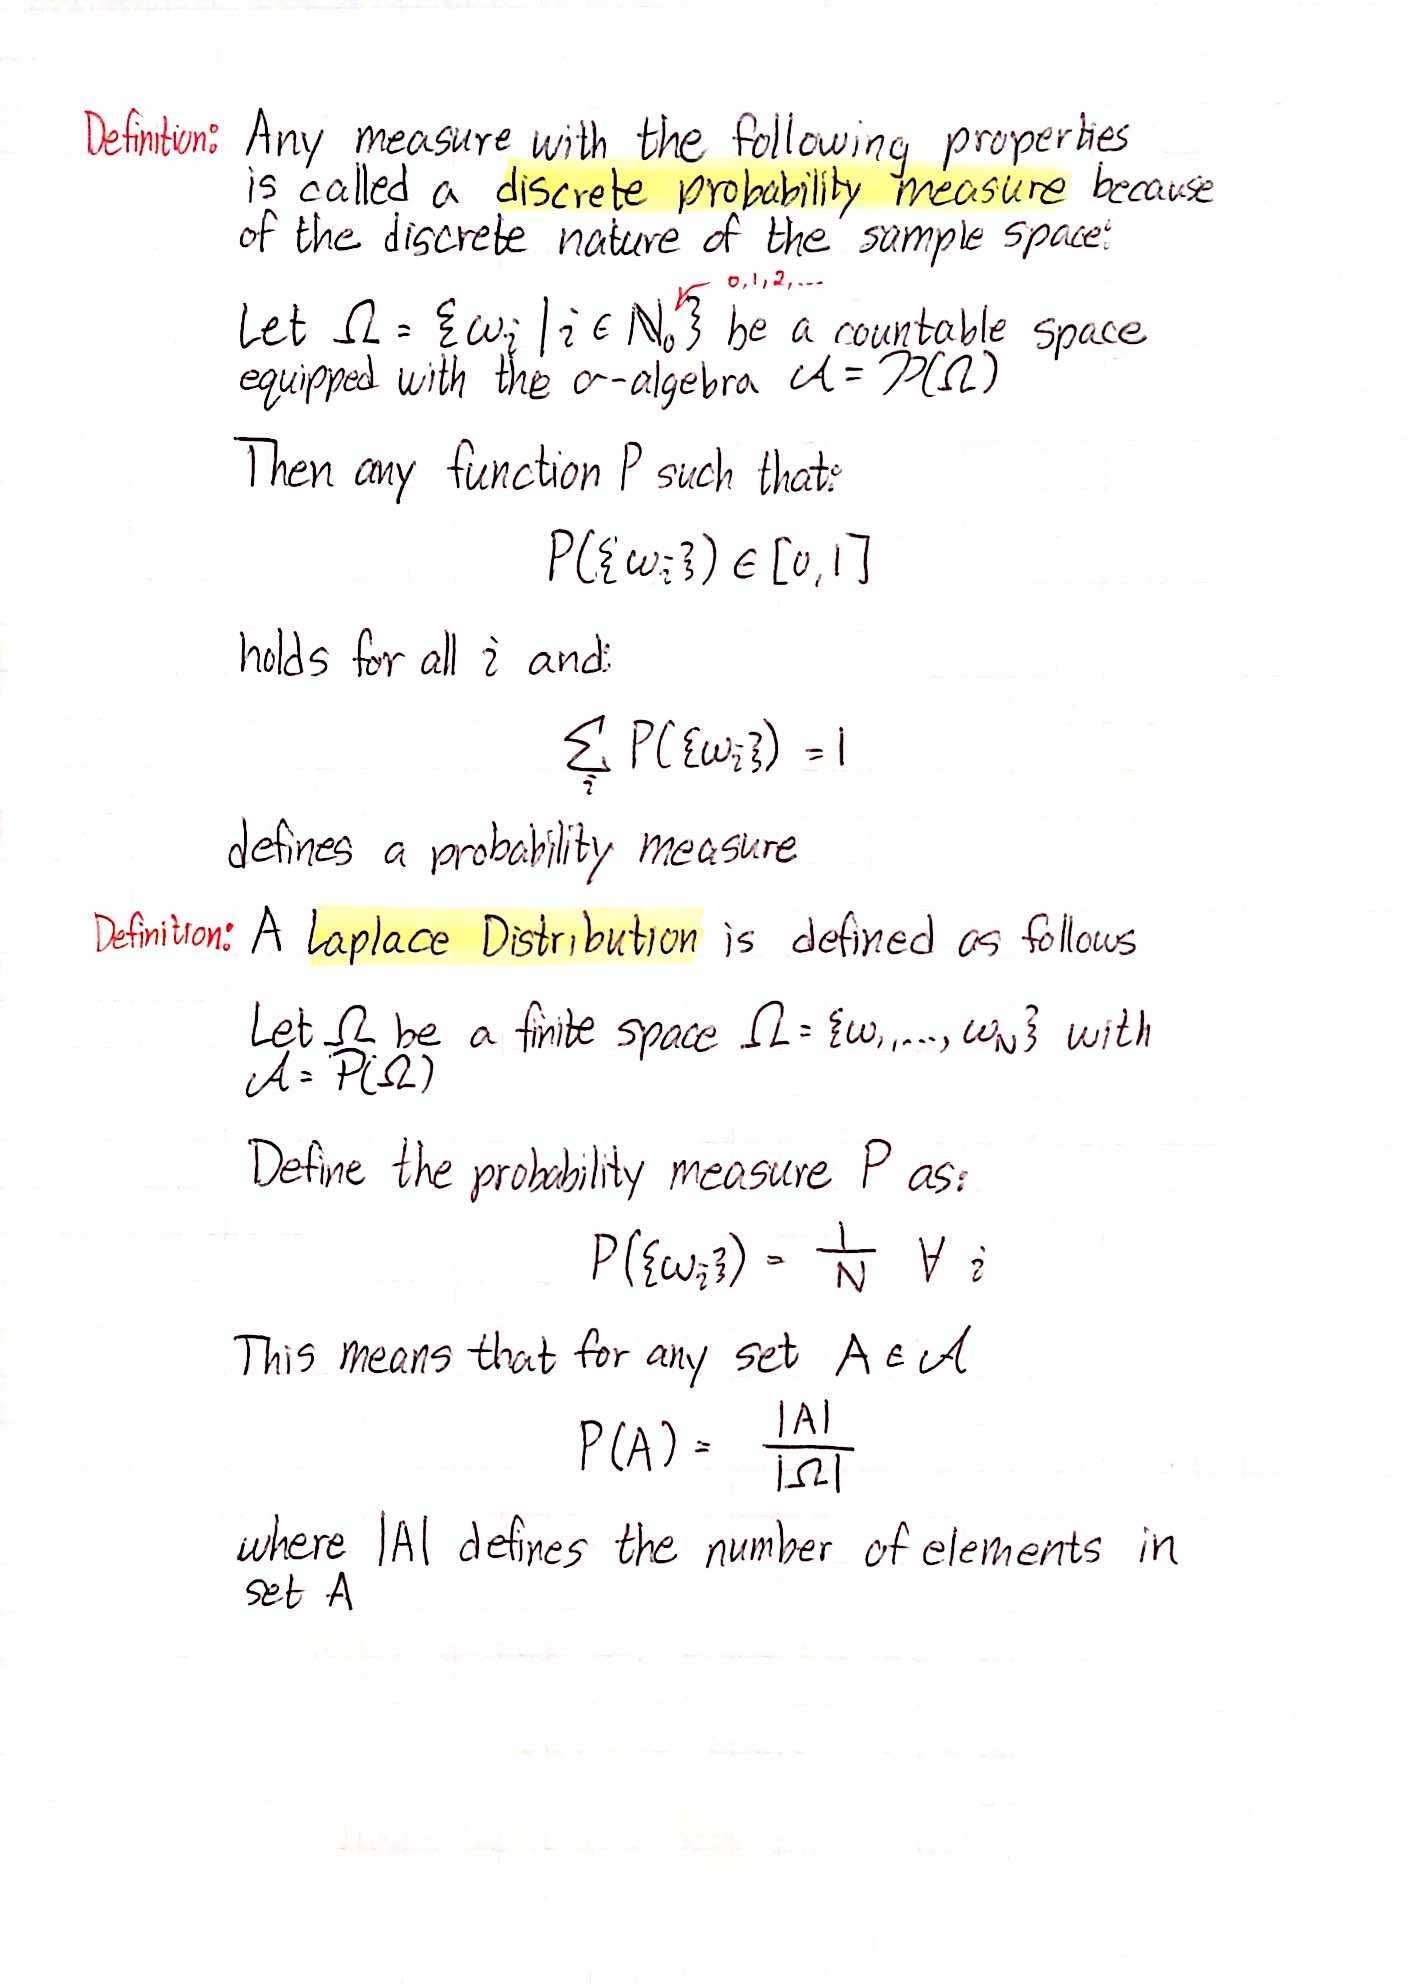 Definition: Any measure with the following properties
is called a discrete probability measure because
of the discrete nature of the sample space:
0,1,2,...
Let Ω = {ω_i | i ∈ ℕ₀} be a countable space
equipped with the σ-algebra 𝒜 = 𝒫(Ω)
Then any function P such that:
P({ω_i}) ∈ [0,1]
holds for all i and:
∑_i P({ω_i}) = 1
defines a probability measure
Definition: A Laplace Distribution is defined as follows
Let Ω be a finite space Ω = {ω₁,...,ω_N} with
𝒜 = P(Ω)
Define the probability measure P as:
P({ω_i}) = 1/N ∀ i
This means that for any set A ∈ 𝒜
P(A) = |A|/|Ω|
where |A| defines the number of elements in
set A